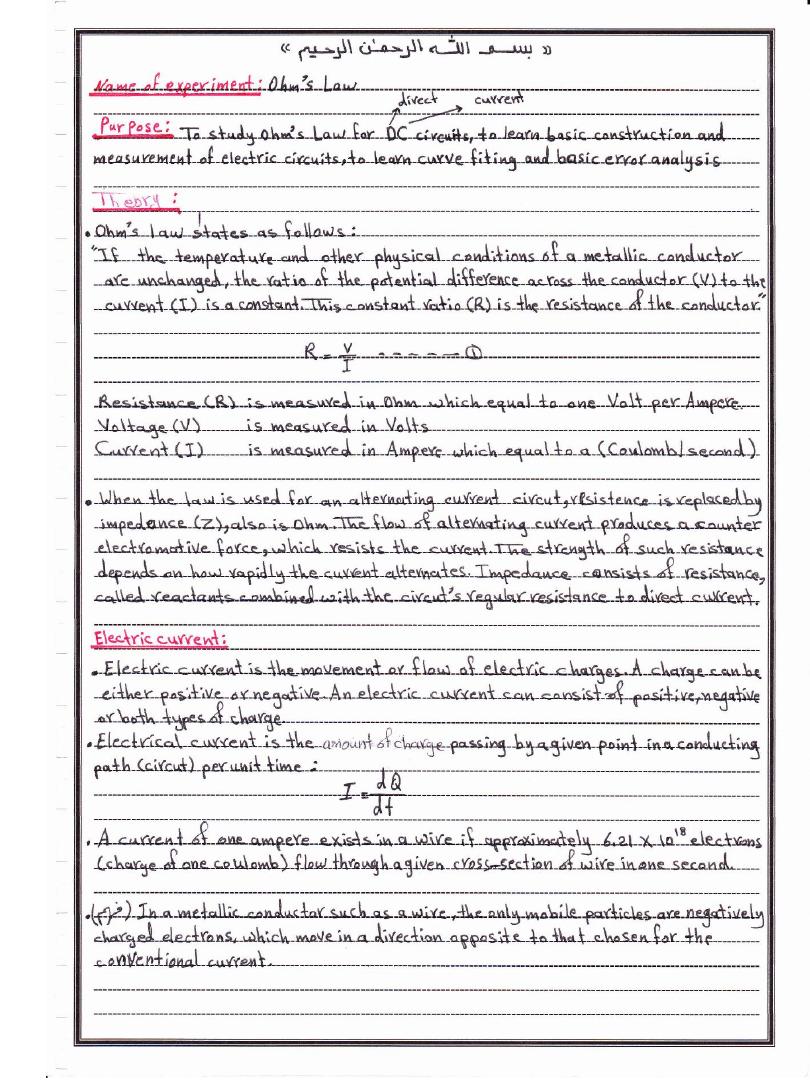 « بسم الله الرحمن الرحيم »
Name of experiment: Ohm's Law
direct current
Purpose: To study Ohm's Law for DC circuits, to learn basic construction and
measurement of electric circuits, to learn curve fiting and basic error analysis
Theory:
• Ohm's law states as follows:
"If the temperature and other physical conditions of a metallic conductor
are unchanged, the ratio of the potential difference across the conductor (V) to the
current (I) is a constant. This constant ratio (R) is the resistance of the conductor."
R = V/I ------ ①
Resistance (R) is measured in Ohm which equal to one Volt per Ampere.
Voltage (V) is measured in Volts
Current (I) is measured in Ampere which equal to a (Coulomb/second)
• When the law is used for an alternating current circut, resistence is replaced by
impedance (Z), also is Ohm. The flow of alternating current produces a counter
electromotive force, which resists the current. The strength of such resistance
depends on how rapidly the current alternates. Impedance consists of resistance,
called reactants combined with the circut's regular resistance to direct current.
Electric current:
• Electric current is the movement or flow of electric charges. A charge can be
either positive or negative. An electric current can consist of positive, negative
or both types of charge.
• Electrical current is the amount of charge passing by a given point in a conducting
path (circut) per unit time:
I = dQ/dt
• A current of one ampere exists in a wire if approximately 6.21 X 10¹⁸ electrons
(charge of one coulomb) flow through a given cross-section of wire in one second.
• In a metallic conductor such as a wire, the only mobile particles are negatively
charged electrons, which move in a direction opposite to that chosen for the
conventional current.